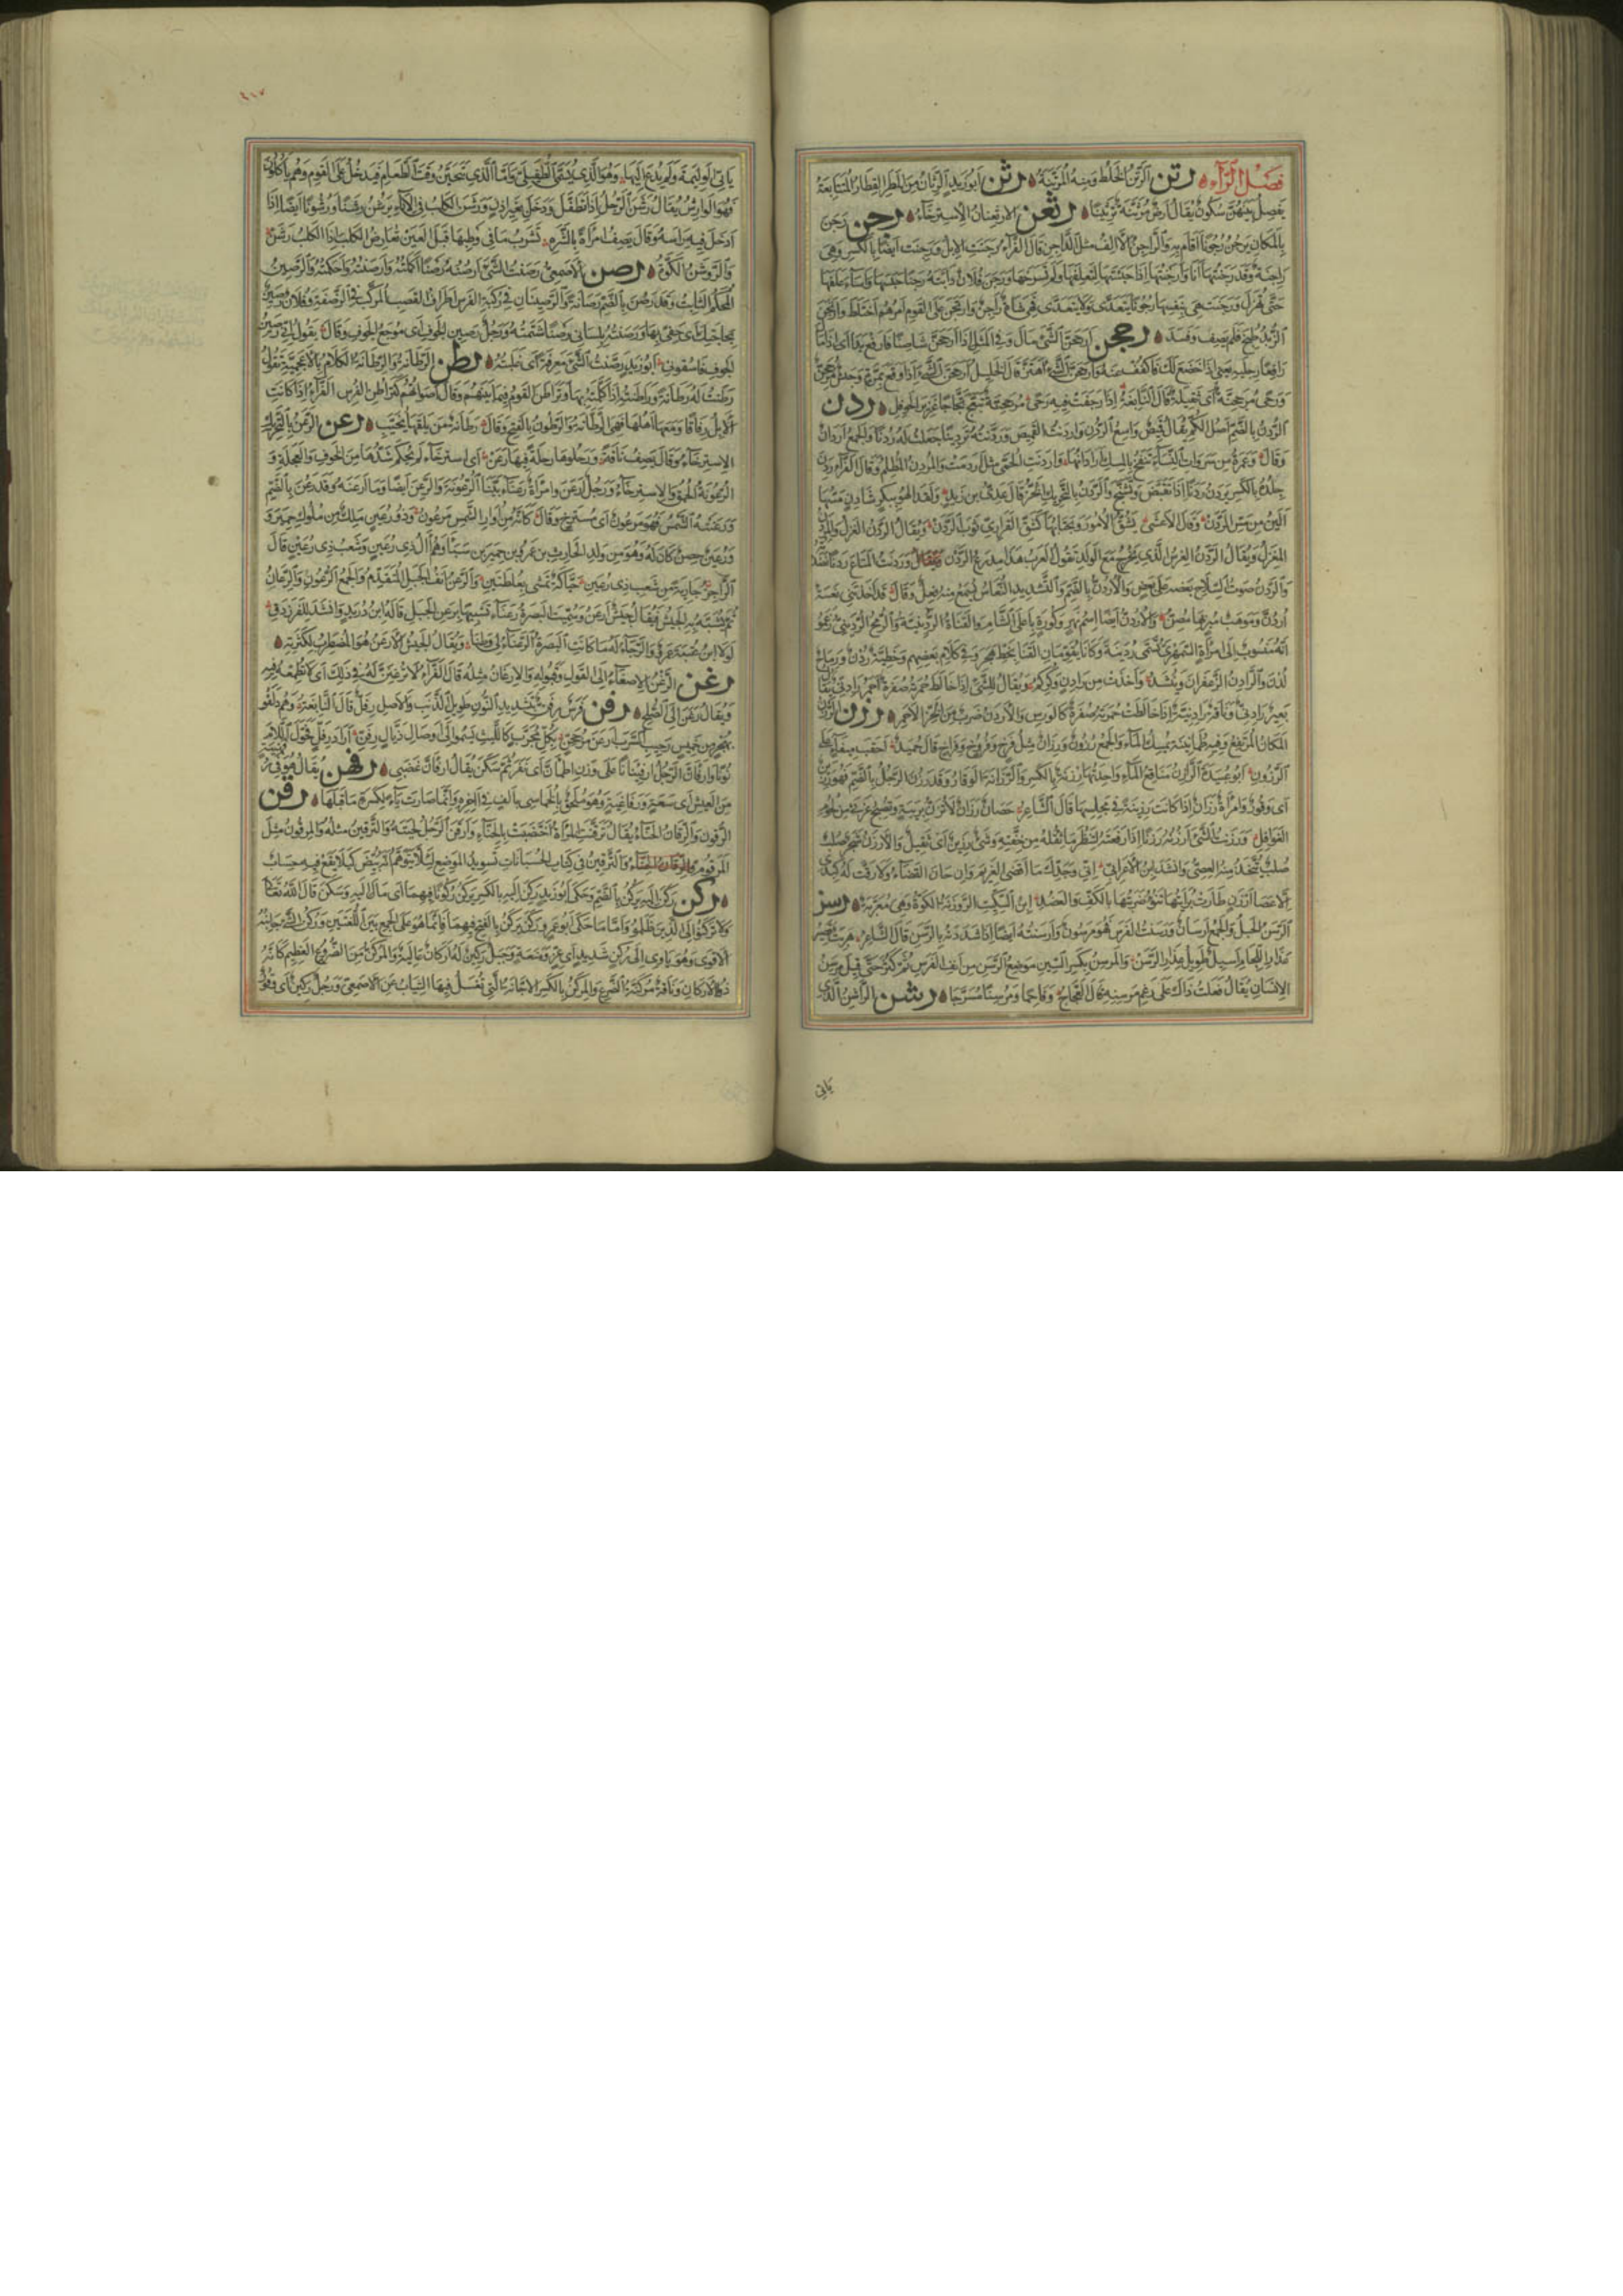 فصل الراء رتن الرتن الخلط ومنه المرتنة رثن ابو زيد الرثان من المطر القطار المتتابعة
يفصل بينهن سكون يقال ارض مرثنة ترثينا رثعن الارثعنان الاسترخاء رجن رجن
بالمكان يرجن رجونا اقام به والراجن الالف مثل الداجن قال الفراء رجنت الابل ورجنت ايضا بالكسر وهي
راجنة وقد رجنتها انا وارجنتها اذا حبستها لتعلفها ولم تسرحها ورجن فلان دابته رجنا حبسها واساء علفها
حتى تهزل ورجنت هي بنفسها رجونا يتعدى ولا يتعدى وهي شاة راجن وارتجن على القوم امرهم اختلط وارتجن
الزبد طبخ فلم يصف وفسد رجحن ارجحن الشئ مال وفي المثل اذا ارجحن شاصيا فارفع يدا اى اذا مال
رافعا رجليه يعني اذا خضع لك فاكفف عنه وارجحن الشئ اهتز قال الخليل ارجحن الشئ اذا وقع بمرة وجيش مرجحن
ورحى مرجحنة اى ثقيلة قال النابغة اذا رجفت فيه رحى مرجحنة تبعج ثجاجا غزير الحوافل ردن
الردن بالضم اصل الكم يقال قميص واسع الردن واردنت القميص وردنته تردينا جعلت له ردنا والجمع اردان
وقال وعمرة من سروات النساء تنفح بالمسك اردانها واردنت الحمى مثل اردمت والمردن المظلم وقال الفراء ردن
جلده بالكسر يردن ردنا اذا تقبض وتشنج والردن بالتحريك الخز قال عدي بن زيد ولقد الهو ببكر شادن مسها
الين من مس الردن وقال الاعشى يشق الامور ويجتابها كشق القراري ثوب الردن ويقال الردن الغزل والمردن
المغزل ويقال الردن الغرس الذي يخرج مع الولد تقول العرب هذا مدرع الردن وردنت المتاع ردنا نضدته
والردن صوت السلاح بعضه على بعض والاردن بالضم والتشديد النعاس لم يسمع منه فعل وقال قد اخذتني نعسة
اردن وموهب مبز بها مصن والاردن ايضا اسم نهر وكورة باعلى الشام والقناة الردينية والرمح الرديني زعموا
انه منسوب الى امراة السمهري تسمى ردينة وكانا يقومان القنا بخط هجر وفي كلام بعضهم وخطية ردن ورماح
لدن والرادن الزعفران وينشد واخذت من رادن وكركم ويقال للشئ اذا خالط حمرته صفرة احمر رادني يقال
بعير رادني وناقة رادنية اذا خالطت حمرته صفرة كالورس والاردن ضرب من الخز الاحمر رزن الرزن
المكان المرتفع وفيه طمانينة يمسك الماء والجمع رزون ورزان مثل فرخ وفروخ وفراخ قال حميد احقب ميفاء على
الرزون ابو عبيدة الرزان مناقع الماء واحدتها رزنة بالكسر والرزانة الوقار وقد رزن الرجل بالضم فهو رزين
اى وقور وامراة رزان اذا كانت رزينة في مجلسها قال الشاعر حصان رزان لا تزن بريبة وتصبح غرثى من لحوم
الغوافل ورزنت الشئ ارزنه رزنا اذا رفعته لتنظر ما ثقله من خفته وشئ رزين اى ثقيل والارزن شجر صلب
صلب يتخذ منه العصي وانشد ابن الاعرابي اني وجدك ما اقضي الغريم وان حان القضاء ولا رقت له كبدي
الا عصا ارزن طارت برايتها تنوء ضربتها بالكف والعضد ابن السكيت الروزنة الكوة وهي معربة رسن
الرسن الحبل والجمع ارسان ورسنت الفرس فهو مرسون وارسنته ايضا اذا شددته بالرسن قال الشاعر هريت قصير
عذار اللجام اسيل طويل عذار الرسن والمرسن بكسر السين موضع الرسن من انف الفرس ثم كثر حتى قيل مرسن
الانسان يقال فعلت ذاك على رغم مرسنه قال العجاج وفاحما ومرسنا مسرجا رشن الراشن الذي
ياتى
ياتي الوليمة ولم يدع اليها وهو الذي يسمى الطفيلي واما الذي يتحين وقت الطعام فيدخل على القوم وهم ياكلون
فهو الوارش يقال رشن الرجل اذا تطفل ودخل بغير اذن ورشن الكلب في الاناء يرشن رشنا ورشونا ايضا اذا
ادخل فيه راسه وقال يصف امراة بالشره تشرب ما في وطبها قبل العين تعارض الكلب اذا الكلب رشن
والروشن الكوة رصن الاصمعي رصنت الشئ ارصنه رصنا اكملته وارصنته واحكمته والرصين
المحكم الثابت وقد رصن بالضم رصانة والرصينان في ركبة الفرس اطراف القصب المركب في الرضفة وفلان رصين
بحاجتك اى حفي بها ورصنته بلساني رصنا شتمته ورجل رصين الجوف اى موجع الجوف وقال يقول اني رصين
الجوف فاسقوني ابو زيد رصنت الشئ معرفة اى علمته رطن الرطانة والرطانة الكلام بالاعجمية تقول
رطنت له رطانة وراطنته اذا كلمته بها وتراطن القوم فيما بينهم وقال اصواتهم كتراطن الفرس الفراء اذا كانت
الابل رفاقا ومعها اهلها فهي الرطانة والرطون بالفتح وقال رطانة من يلقها يخيب رعن الرعن بالتحريك
الاسترخاء وقال يصف ناقة ورحلوها رحلة فيها رعن اى استرخاء لم يحكم شدها من الخوف والعجلة و
الرعونة الحمق والاسترخاء ورجل ارعن وامراة رعناء بينا الرعونة والرعن ايضا وما ارعنه وقد رعن بالضم
ورعنته الشمس فهو مرعون اى مسترخ وقال كانه من اوار الشمس مرعون وذو رعين ملك من ملوك حمير و
ورعين حصن كان له وهو من ولد الحارث بن عمرو بن حمير بن سبا وهم ال ذي رعين وشعب ذي رعين قال
الراجز جارية من شعب ذي رعين حياكة تمشي بعلطتين والرعن انف الجبل المتقدم والجمع الرعون والرعان
ثم يشبه به الجيش فيقال جيش ارعن وسميت البصرة رعناء تشبيها برعن الجبل قاله ابن دريد وانشد للفرزدق
لولا ابن عتبة عمرو والرجاء له ما كانت البصرة الرعناء لي وطنا ويقال الجيش الارعن هو المضطرب لكثرته
رغن الرغن الاصغاء الى القول وقبوله والارغان مثله قال الفراء لا ترغنن له في ذلك اى لا تطعه فيه
ويقال رغن الى الصلح رفن فرس رفن بتشديد النون طويل الذنب والاصل رفل قال النابغة وهم دلفوا
بهجر من خميس رحيب السرب ارعن مرجحن بكل مجرب كالليث يسمو الى اوصال ذيال رفن اراد رفل فحول اللام
نونا وارفان الرجل ارفئنانا على وزن اطمان اى نفر ثم سكن يقال ارفان غضبي رفهن يقال هو في رفهنية
من العيش اى سعة ورفاغية وهو ملحق بالخماسي بالف في اخره وانما صارت ياء بكسرة ما قبلها رقن
الرقون والرقان الحناء يقال ترقنت المراة اختضبت بالحناء وارقن الرجل لحيته والترقين مثله والمرقون مثل
المرقوم والرقان الحناء والترقين في كتاب الحسبانات تسويد الموضع لئلا يتوهم انه بيض كيلا يقع فيه حساب
ركن ركن اليه يركن بالضم وحكى ابو زيد ركن اليه بالكسر يركن ركونا فيهما اى مال اليه وسكن قال الله تعالى
ولا تركنوا الى الذين ظلموا واما ما حكى ابو عمرو ركن يركن بالفتح فيهما فانما هو على الجمع بين اللغتين وركن الشئ جانبه
الاقوى وهو ياوي الى ركن شديد اى عز ومنعة وجبل ركين له اركان عالية والمركن من الضروع العظيم كانه
ذو الاركان وناقة مركنة الضرع والمركن بالكسر الاجانة التي تغسل فيها الثياب عن الاصمعي ورجل ركين اى وقور